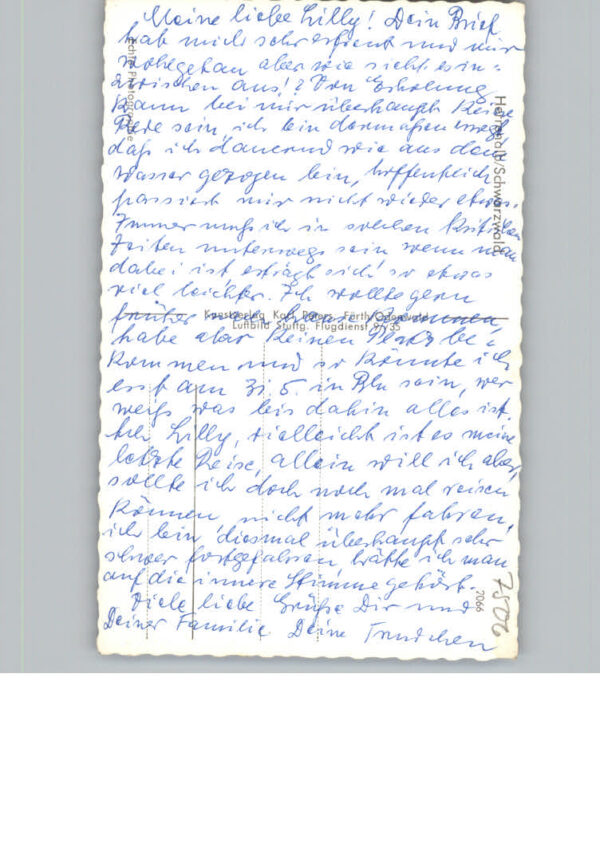 Meine liebe Lilly! Dein Brief
hat mich sehr erfreut und mir
wohlgetan aber wie sieht es in=
zwischen aus!? Von Erholung
kann bei mir überhaupt keine
Rede sein, ich bin dermaßen
daß ich dauernd wie aus dem
wasser gezogen bin, hoffentlich
passiert mir nicht wieder etwas.
Immer muß ich in solchen kritischen
Zeiten unterwegs sein wenn man
dabei ist erträgt sich so etwas
viel leichter. Ich wollte gern
früher nach Hause kommen,
habe aber keinen Platz be=
kommen und so könnte ich
erst am 31. 5. in Bln sein, wer
weiß was bis dahin alles ist.
Ach Lilly, vielleicht ist es meine
letzte Reise, allein will ich aber,
sollte ich doch noch mal reisen
können nicht mehr fahren,
ich bin diesmal überhaupt sehr
schwer fortgefahren, hätte ich man
auf die innere Stimme gehört.
Viele liebe Grüße Dir und
Deiner Familie Deine Trudchen
Echte Photographie
Herrenalb/Schwarzwald
Kunstverlag Karl Peters, Fürth/Odenwald
Luftbild Stuttg. Flugdienst 9/935
2066